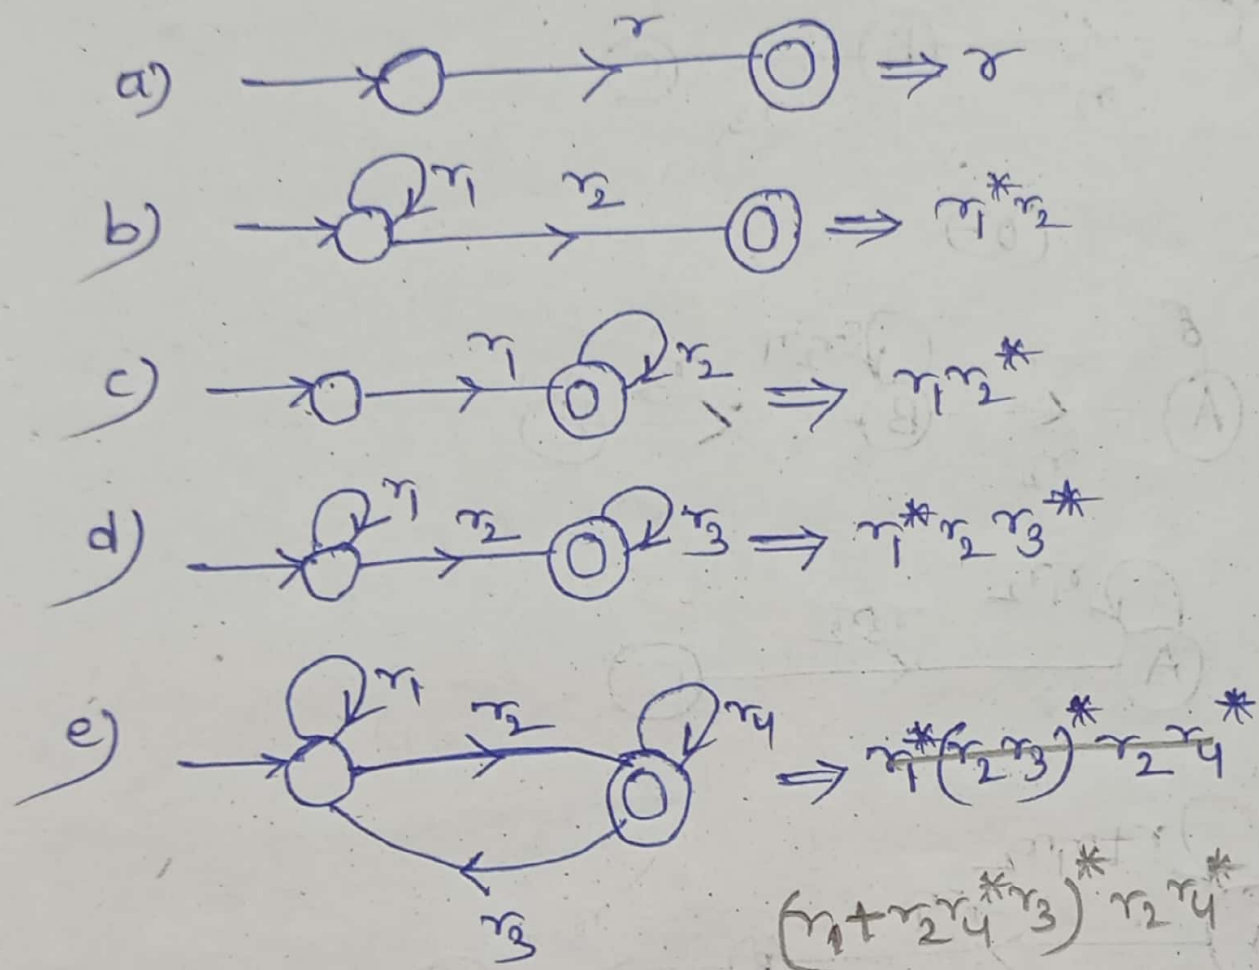 a) r ⇒ r
b) r₁ r₂ ⇒ r₁*r₂
c) r₁ r₂ ⇒ r₁r₂*
d) r₁ r₂ r₃ ⇒ r₁*r₂r₃*
e) r₁ r₂ r₄ ⇒ r₁*(r₂r₃)*r₂r₄*
r₃ (r₁+r₂r₄*r₃)*r₂r₄*